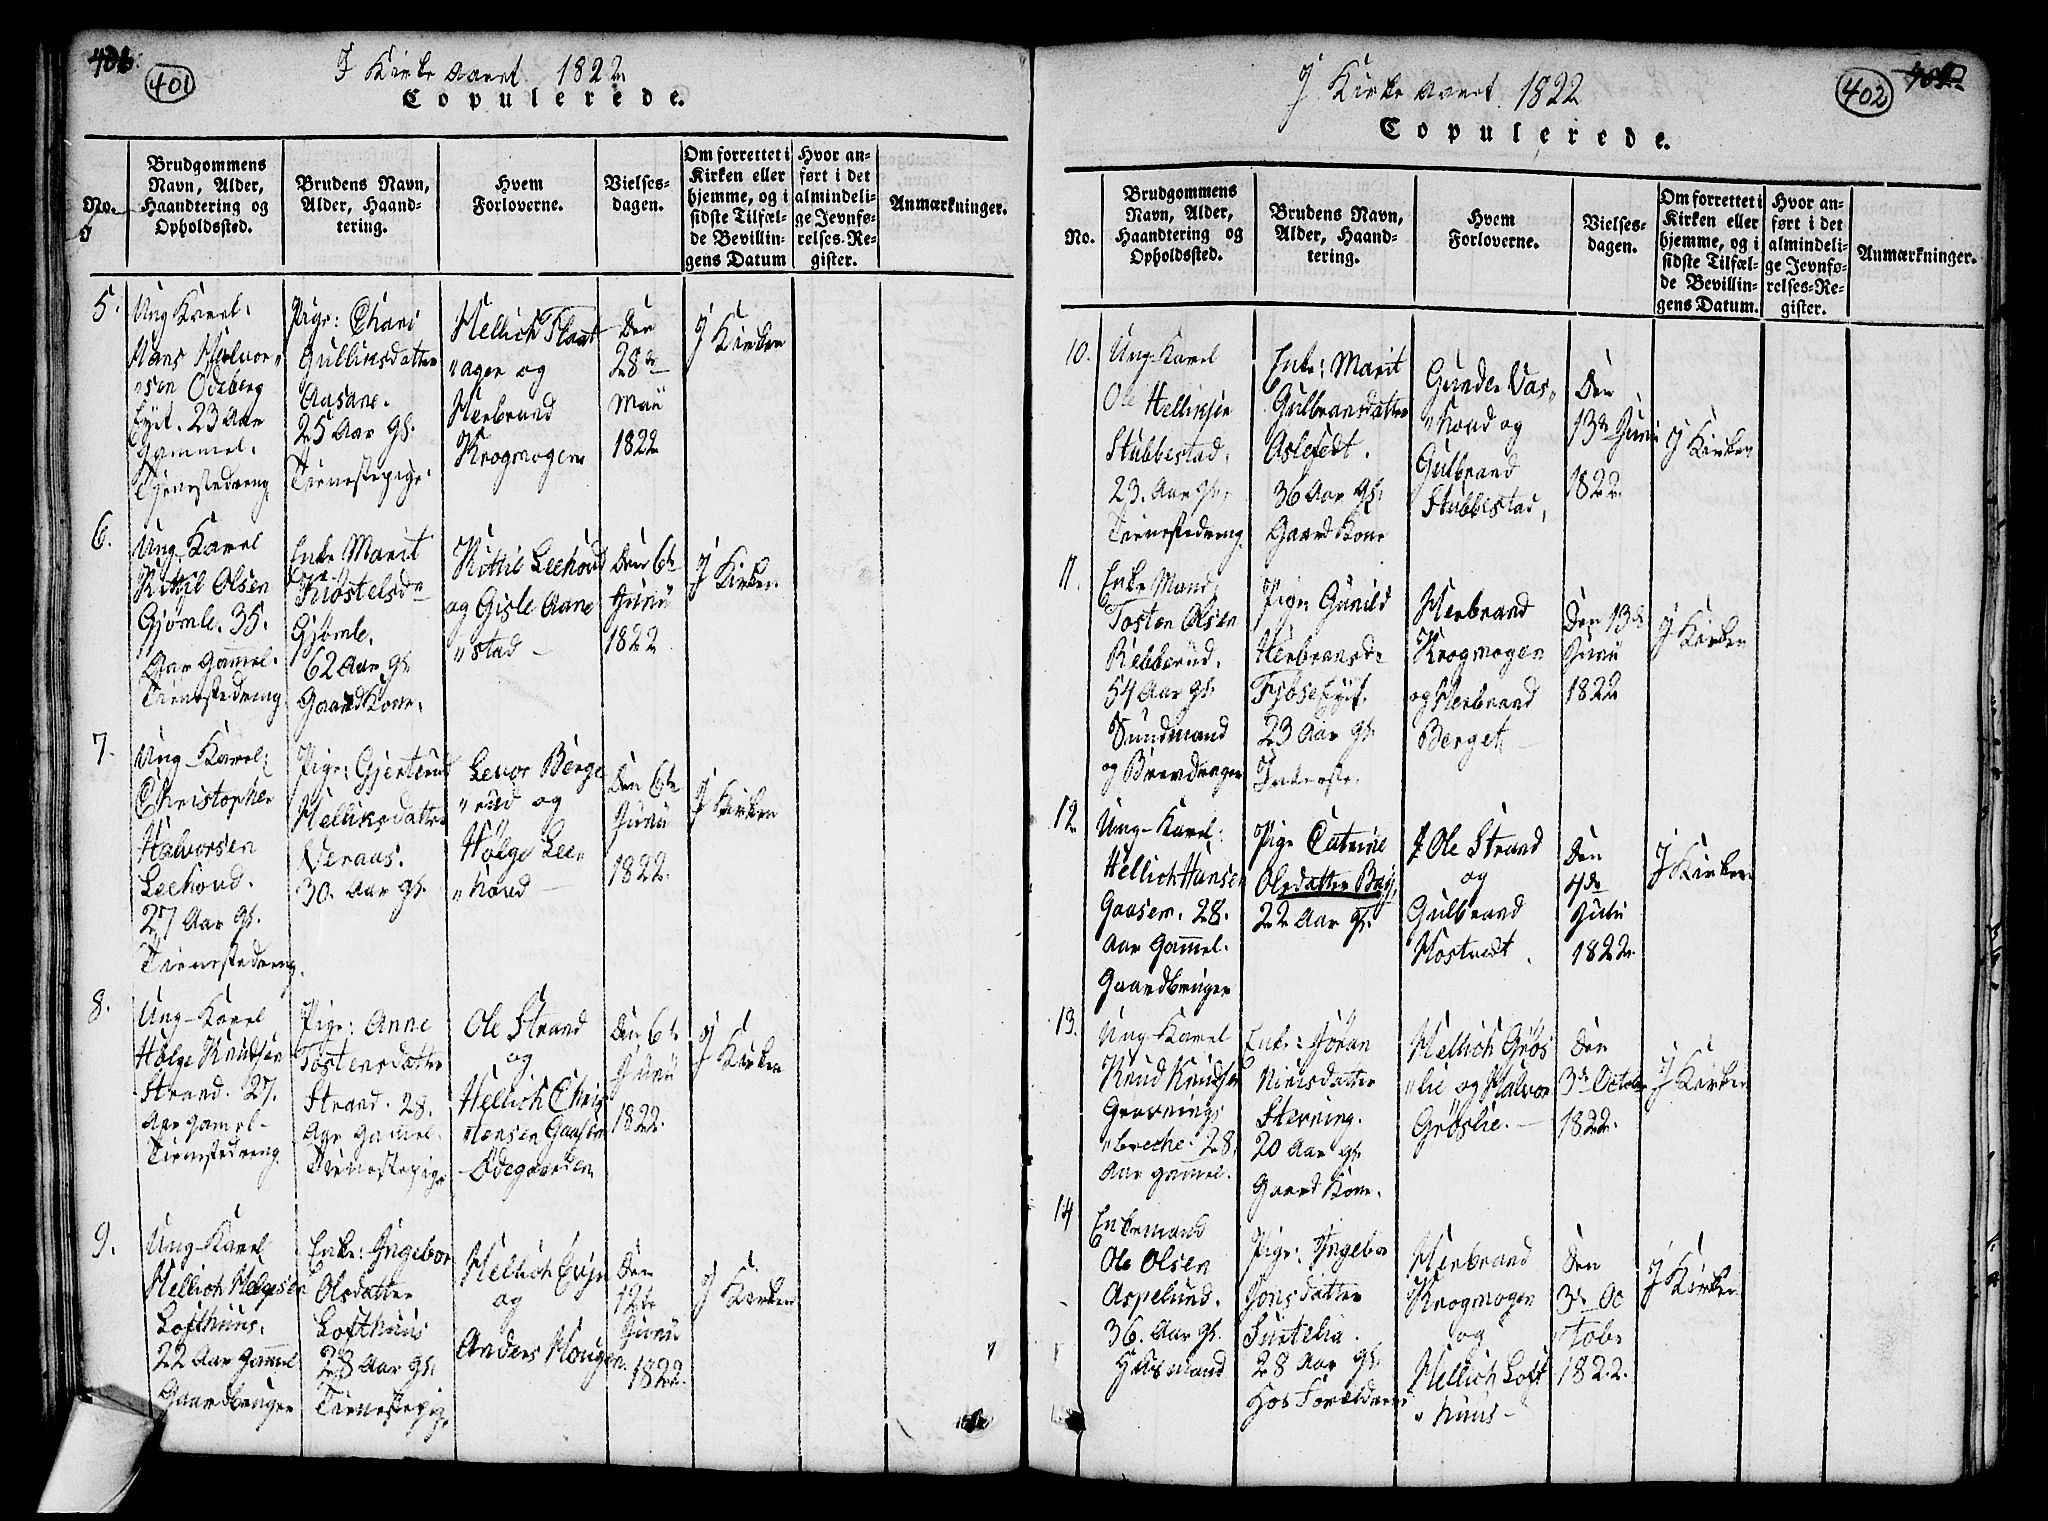 401
I Kirke Aaret 1822
Copulerede.
No.
Brudgommens
Navn, Alder,
Haandtering og
Opholdssted.
Brudens Navn,
Alder, Haand-
tering.
Hvem
Forloverne.
Vielses-
dagen.
Om forrettet i
Kirken eller
hjemme, og i
sidste Tilfæl-
de Bevillin-
gens Datum
Hvor an-
ført i det
almindeli-
ge Jevnfø-
relses-Re-
gister.
Anmærkninger.
5.
Ung Karl:
Hans Halvor-
"sen Ödeberg
Eyet. 23 Aar
Gammel.
Tjenestedreng
Pige: Chari
Gulliksdatter
Aasane.
25 Aar Gl.
Tienestepige
Hellich Flaat
"agen og
Herbrand
Krogmogen
Den
28de
Maii
1822
I Kirken
6.
Ung Karel
Kittil Olsen
Gjömle. 35.
Aar Gammel.
Tienestedreng
Enke Marit
Kiöstelsd
Gjömle.
62 Aar Gl.
Gaard Kone.
Kittil Leehoud
og Gisle Aane
"stad
Den 6te
Junii
1822
I Kirken
7.
Ung-Karel:
Christopher
Halvorsen
Leehoud.
27 Aar Gl.
Tienestedreng.
Pige: Gjertrud
Helliksdatter
Veraas.
30. Aar Gl.
Levor Berge
"rud og
Holge Lee
"houd
Den 6te
Junii
1822.
I Kirken
8.
Ung-Karel
Holge Knudsen
Strand. 27.
Aar Gamel
Tienestedreng
Pige: Anne
Tostensdatter
Strand. 28.
Aar Gamel.
Tienestepige
Ole Strand
og
Hellich Chris
"tensen Gaasen
Ödegaarden
Den 6te
Junii
1822.
I Kirken
9.
Ung-Karel
Hellich Helgesen
Lofthuus.
22 Aar Gammel
Gaardbruger
Enke: Ingebor
Olsdatter
Lofthuus
28 Aar Gl.
Tienestepige
Hellich Evju
og
Anders Hougen.
Den
12te
Junii
1822.
I Kirken
402
I Kirke Aaret 1822
Copulerede.
No.
Brudgommens
Navn, Alder,
Haandtering og
Opholdssted.
Brudens Navn,
Alder, Haand-
tering.
Hvem
Forloverne.
Vielses-
dagen.
Om forrettet i
Kirken eller
hjemme, og i
sidste Tilfæl-
de Bevillin-
gens Datum.
Hvor an-
ført i det
almindeli-
ge Jevnfø-
relses-Re-
gister.
Anmærkninger.
10.
Ung-Karel
Ole Helliksen
Stubbestad.
23. Aar Gl.
Tienestedreng
Enke: Marit
Gulbransdatter
Aslefedt.
36 Aar Gl.
Gaard Kone
Gunder Vas
"houd og
Gulbrand
Stubbestad,
Den
13de Junii
1822.
I Kirken
11.
Enke Mand
Tosten Olsen
Rebberud.
54 Aar Gl.
Sundmand
og Brevdrager
Pige: Gunild
Herbransd
Fjöseeyet.
23 Aar Gl.
Inderste.
Herbrand
Krogmogen
og Herbrand
Berget
Den 13de
Junii
1822
I Kirken
12.
Ung-Karel:
Hellich Hansen
Gaasen. 28.
Aar Gammel.
Gaardbruger
Pige Catrine
Olsdatter Bay
22 Aar Gl.
Ole Strand
og
Gulbrand
Hostvedt.
Den
4de
Julii
1822.
I Kirken
13.
Ung-Karel
Knud Knudsen
Gravnings
"breche. 28.
Aar gammel.
Enke: Jöran
Nielsdatter
Stevning.
20 Aar Gl.
Gaard Kone.
Hellich Grös
"lie og Halvor
Gröslie.
Den
3de October
1822.
I Kirken
14
Enkemand
Ole Olsen
Aspelund.
36. Aar Gl.
Huusmand
Pige: Ingebor
Jonsdatter
Surtelia.
28 Aar Gl.
Hos Forældrene
Herbrand
Krogmogen
og
Hellich Loft
"huus
Den
3de Oc
tobr
1822.
I Kirken